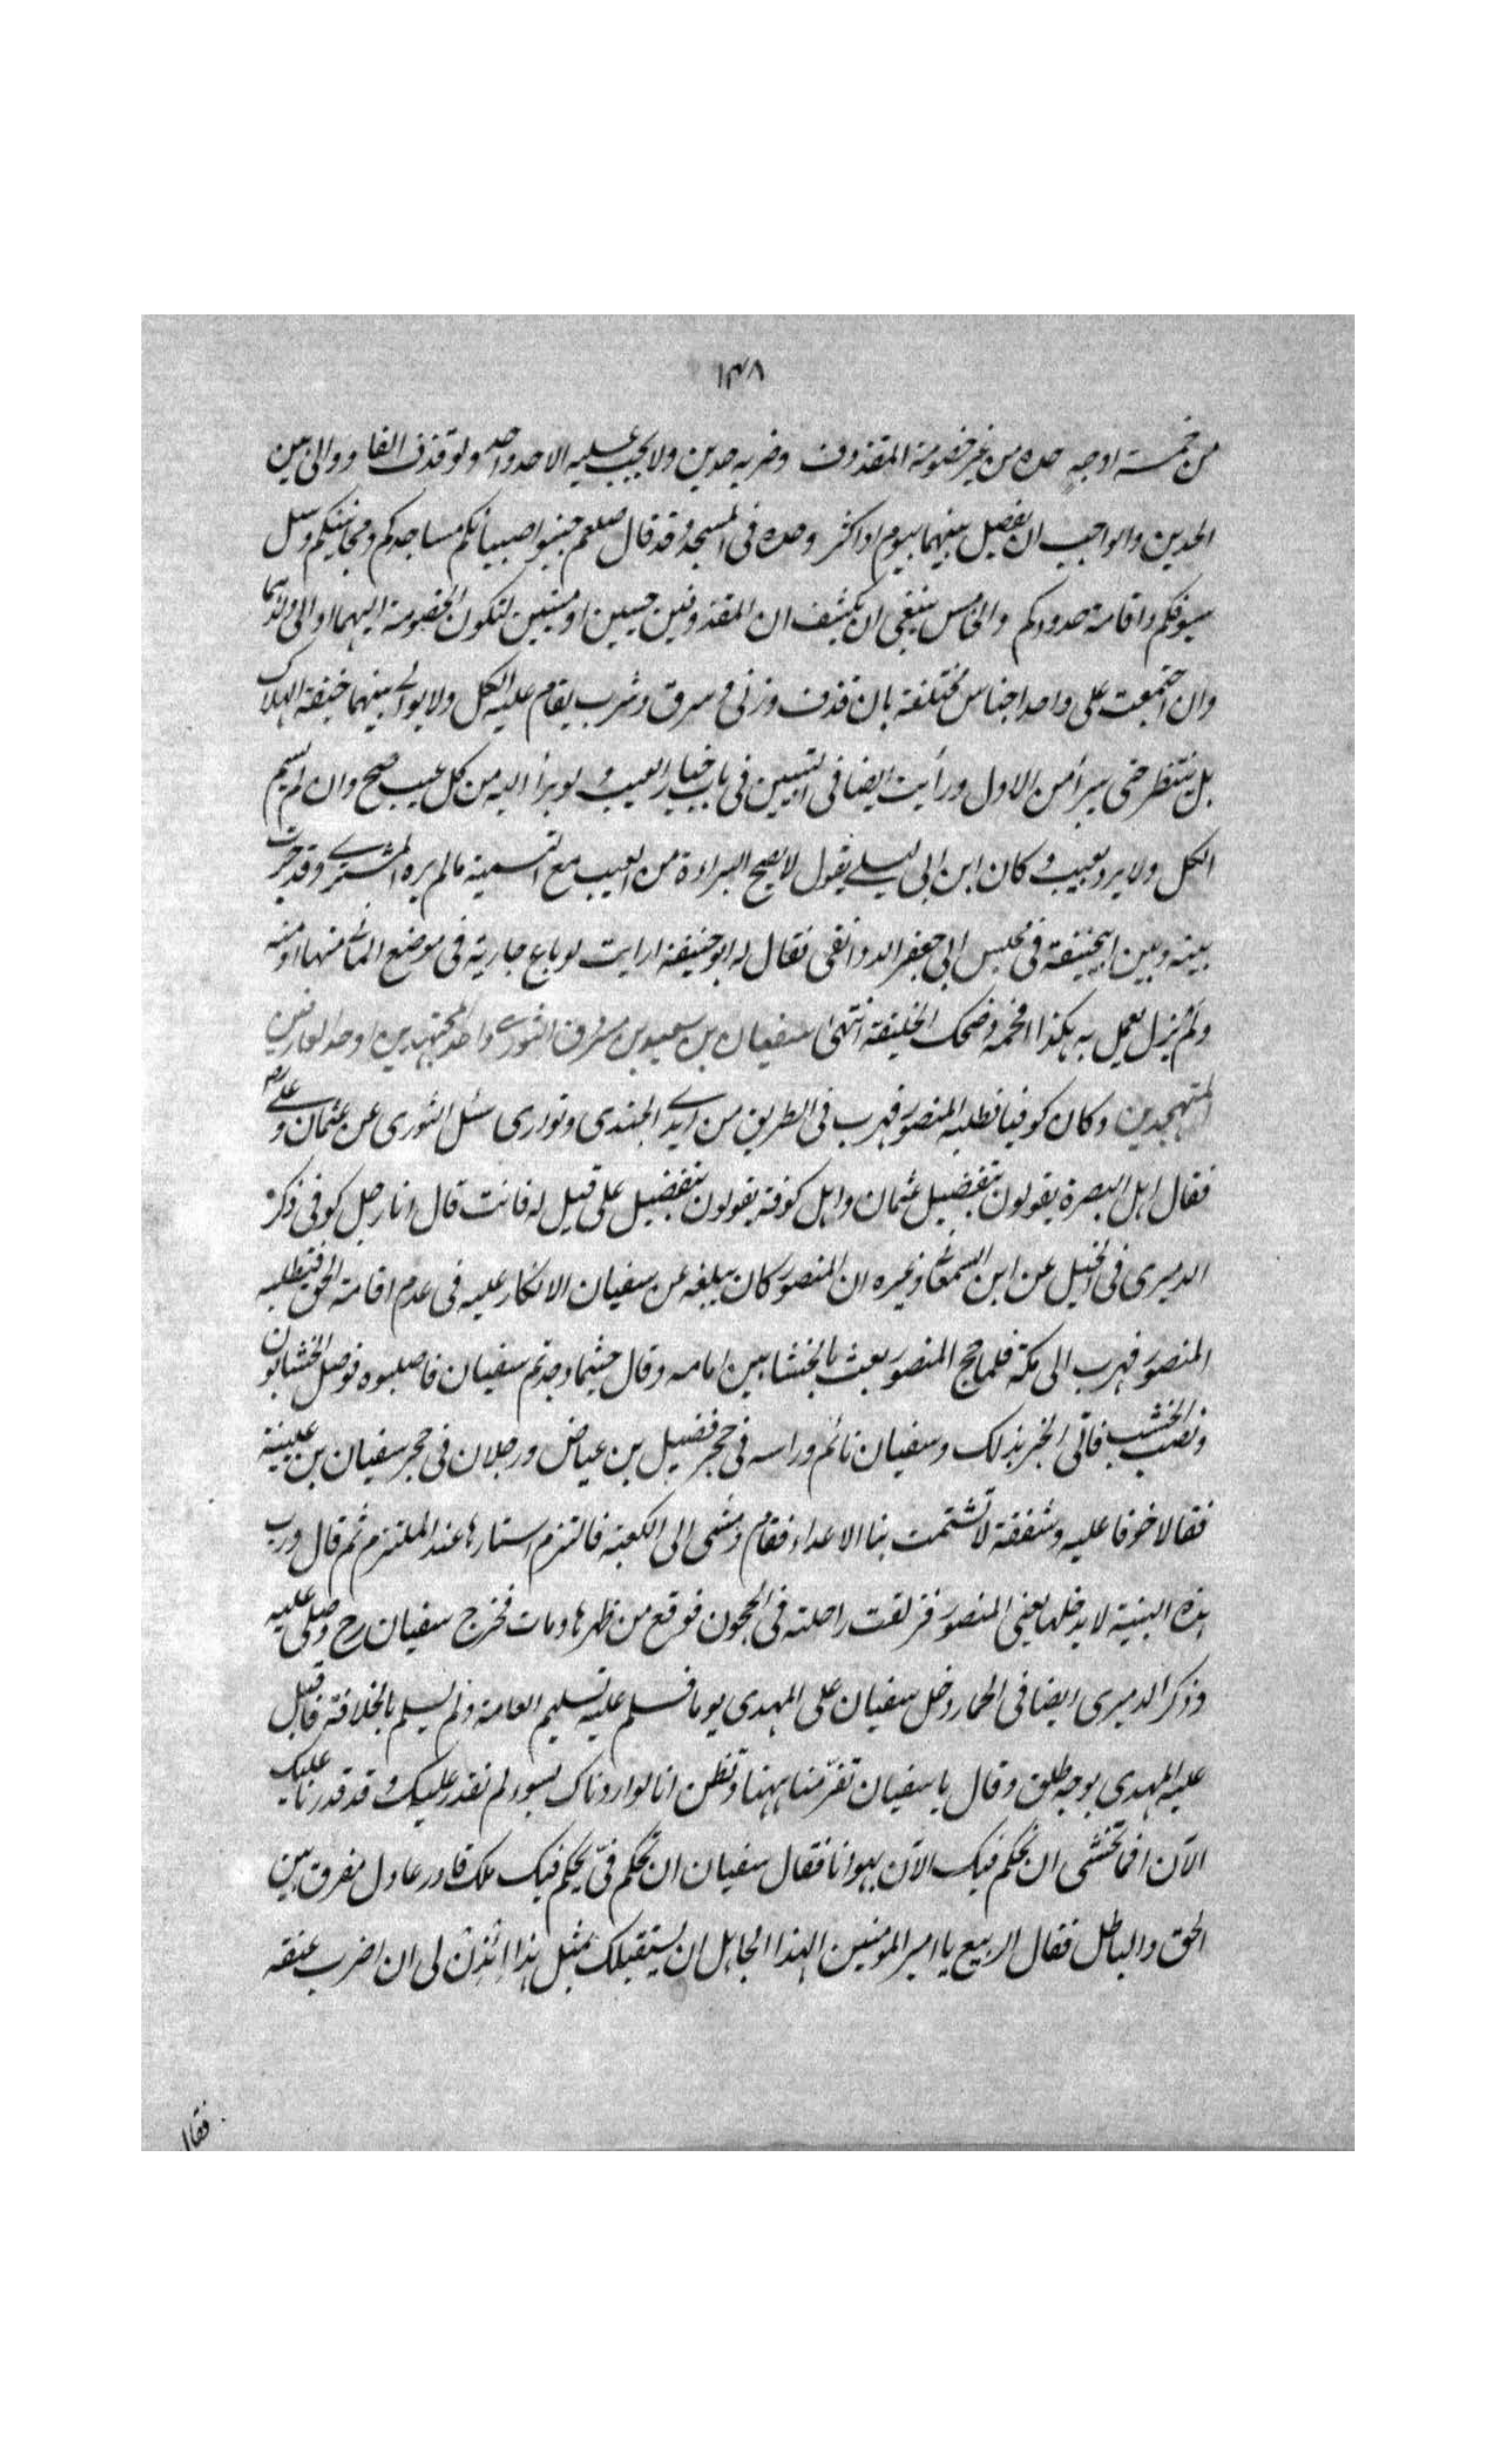 ١٣٨
من خمسة اوجه حده من غير خصومة المقذوف وضربه حدين ولا يجب عليه الا حد واحد ولو قذف الفا ووالى بين
الحدين والواجب ان يفصل بينهما بيوم او اكثر وحده فى المسجد وقد قال صلعم جنبوا صبيانكم مساجدكم ومجانينكم وسل
سيوفكم واقامة حدودكم والخامس ينبغى ان يكشف ان المقذوفين حيين او ميتين لتكون الخصومة اليهما او الى ولدهما
وان اجتمعت على واحد اجناس مختلفة بان قذف وزنى وسرق وشرب يقام عليه الكل ولا يوالى بينهما خيفة الهلاك
بل ينتظر حتى يبرأ من الاول ورأيت ايضا فى التبيين فى باب خيار العيب ولو برأ اليه من كل عيب صح وان لم يسم
الكل ولا يرد بعيب وكان ابن ابى ليلى يقول لا يصح البراءة من العيب مع التسمية ما لم يره المشترى وقد جرت
بينه وبين ابيحنيفة فى مجلس ابى جعفر الدوانقى فقال له ابو حنيفة ارايت لو باع جارية فى موضع المأتى منها او منه
ولم يزل يعمل به هكذا افحمه وضحك الخليفة انتهى سفيان بن سعيد بن مسروق الثورى واحد المجتهدين اوحد العارفين
المتهجدين وكان كوفيا فطلبه المنصور فهرب فى الطريق من ايدى الجندى وتوارى سئل الثورى عن عثمان وعلى رضـ
فقال اهل البصرة يقولون بتفضيل عثمان واهل كوفة يقولون بتفضيل على قيل له فانت قال انا رجل كوفى ذكر
الدميرى فى الخيل عن ابن السمعانى وغيره ان المنصور كان يبلغه عن سفيان الانكار عليه فى عدم اقامة الحق فتطلبه
المنصور فهرب الى مكة فلما حج المنصور بعث بالخشابين امامه وقال حيثما وجدتم سفيان فاصلبوه فوصل الخشابون
ونصب الخشب فاتى الخبر بذلك وسفيان نائم وراسه فى حجر فضيل بن عياض ورجلان فى حجر سفيان بن عيينة
فقالا خوفا عليه وشفقة لا تشتمت بنا الاعداء فقام ومشى الى الكعبة فالتزم استارها عند الملتزم ثم قال ورب
هذه البنية لا يدخلها يعنى المنصور فزلقت راحلته فى الحجون فوقع من ظهرها ومات فخرج سفيان رح وصلى عليه
وذكر الدميرى ايضا فى الحمار دخل سفيان على المهدى يوما فسلم عليه تسليم العامة ولم يسلم بالخلافة فاقبل
عليه المهدى بوجه طلق وقال يا سفيان تفر منا ههنا وتظن انا لو اردناك بسوء لم نقدر عليك وقد قدرنا عليك
الآن افما تخشى ان نحكم فيك الآن بهوانا فقال سفيان ان تحكم فىّ يحكم فيك ملك قادر عادل مفرق بين
الحق والباطل فقال الربيع يا امير المؤمنين الهذا الجاهل ان يستقبلك بمثل هذا ائذن لى ان اضرب عنقه
فقال